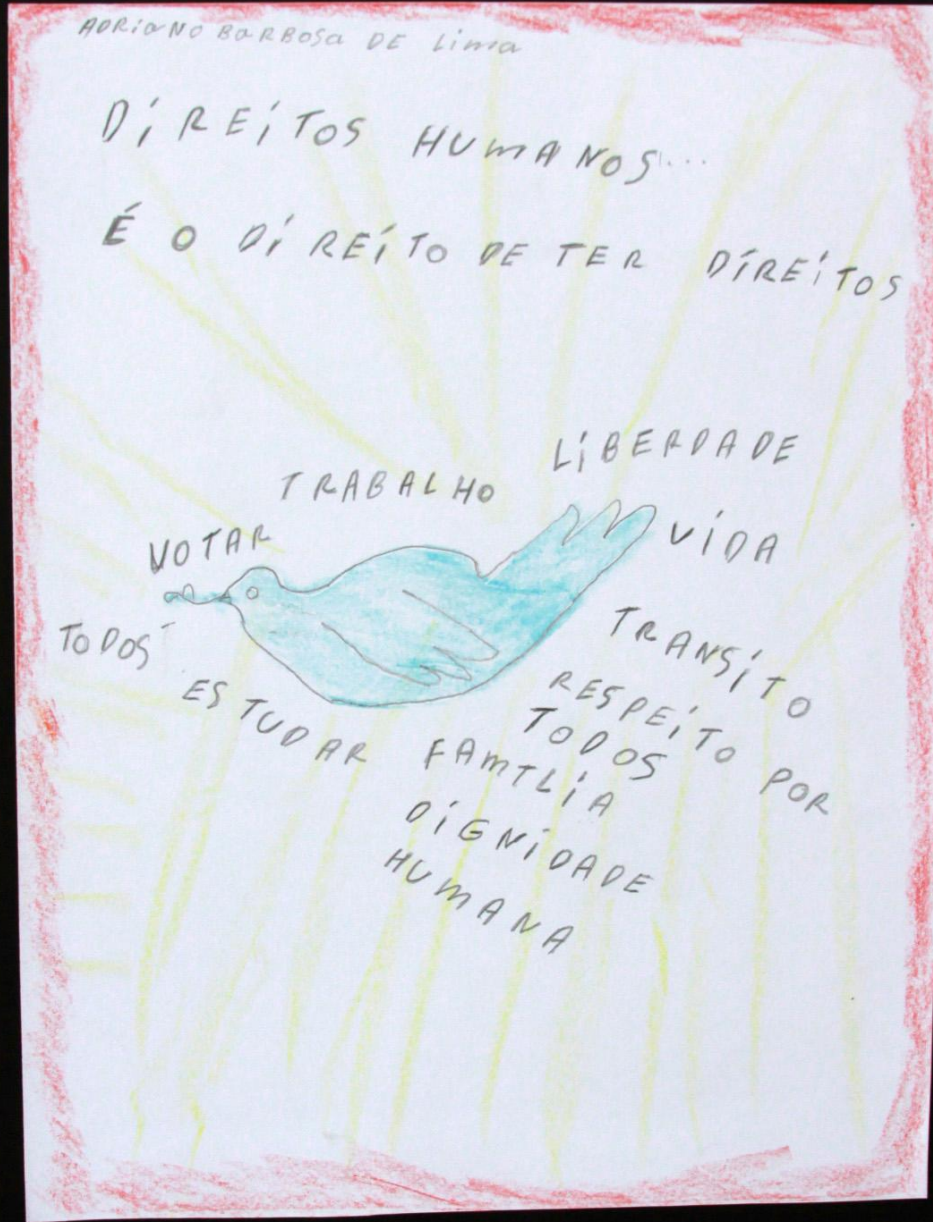 ADRiANO BARBOSA DE Lima
DiREiTOS HUMANOS...
É O DiREiTO DE TER DiREiTOS
LiBERDADE
TRABALHO
VOTAR
ViDA
TODOS
TRANSiTO
ESTUDAR
RESPEiTO POR
TODOS
FAMILiA
DiGNiDADE
HUMANA